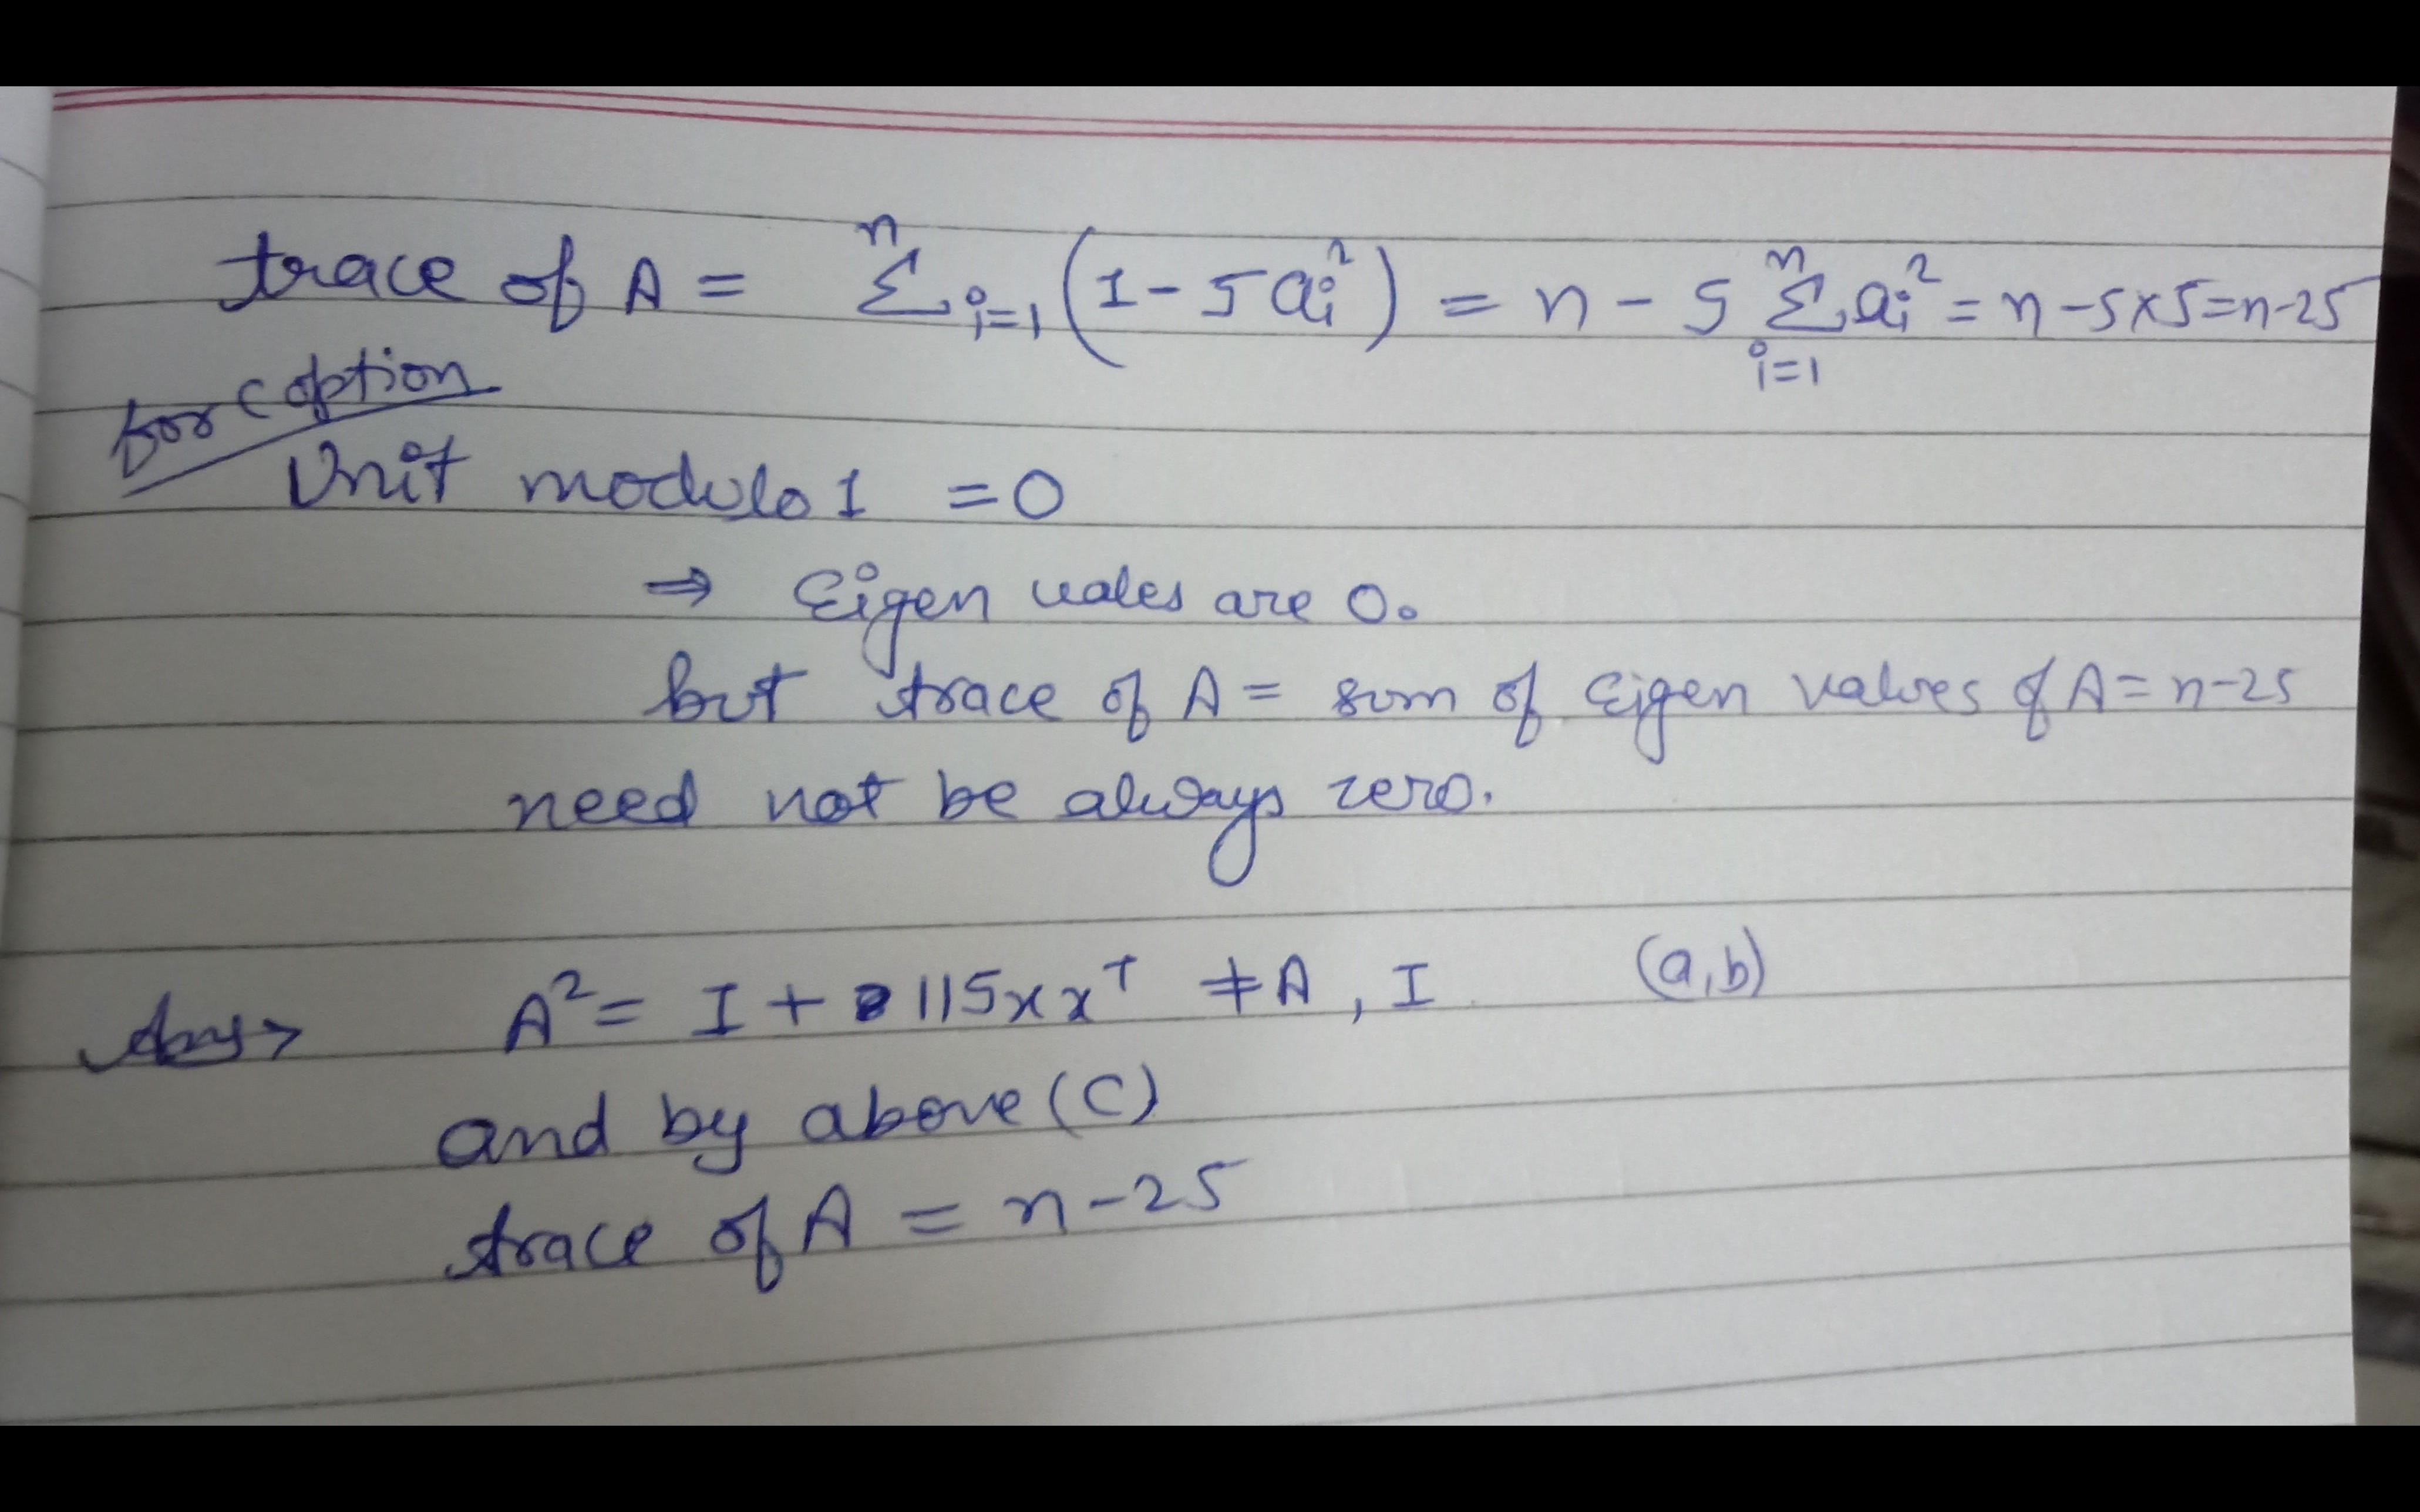 trace of A = Σ^n_{i=1} (1 - 5a_i^2) = n - 5 Σ^n_{i=1} a_i^2 = n-5×5=n-25
for c option
Unit modulo 1 = 0
⇒ Eigen vales are 0.
but trace of A = sum of Eigen values of A = n-25
need not be always zero.
Ans> A^2 = I + 115xx^T ≠ A, I (a,b)
and by above (C)
trace of A = n-25